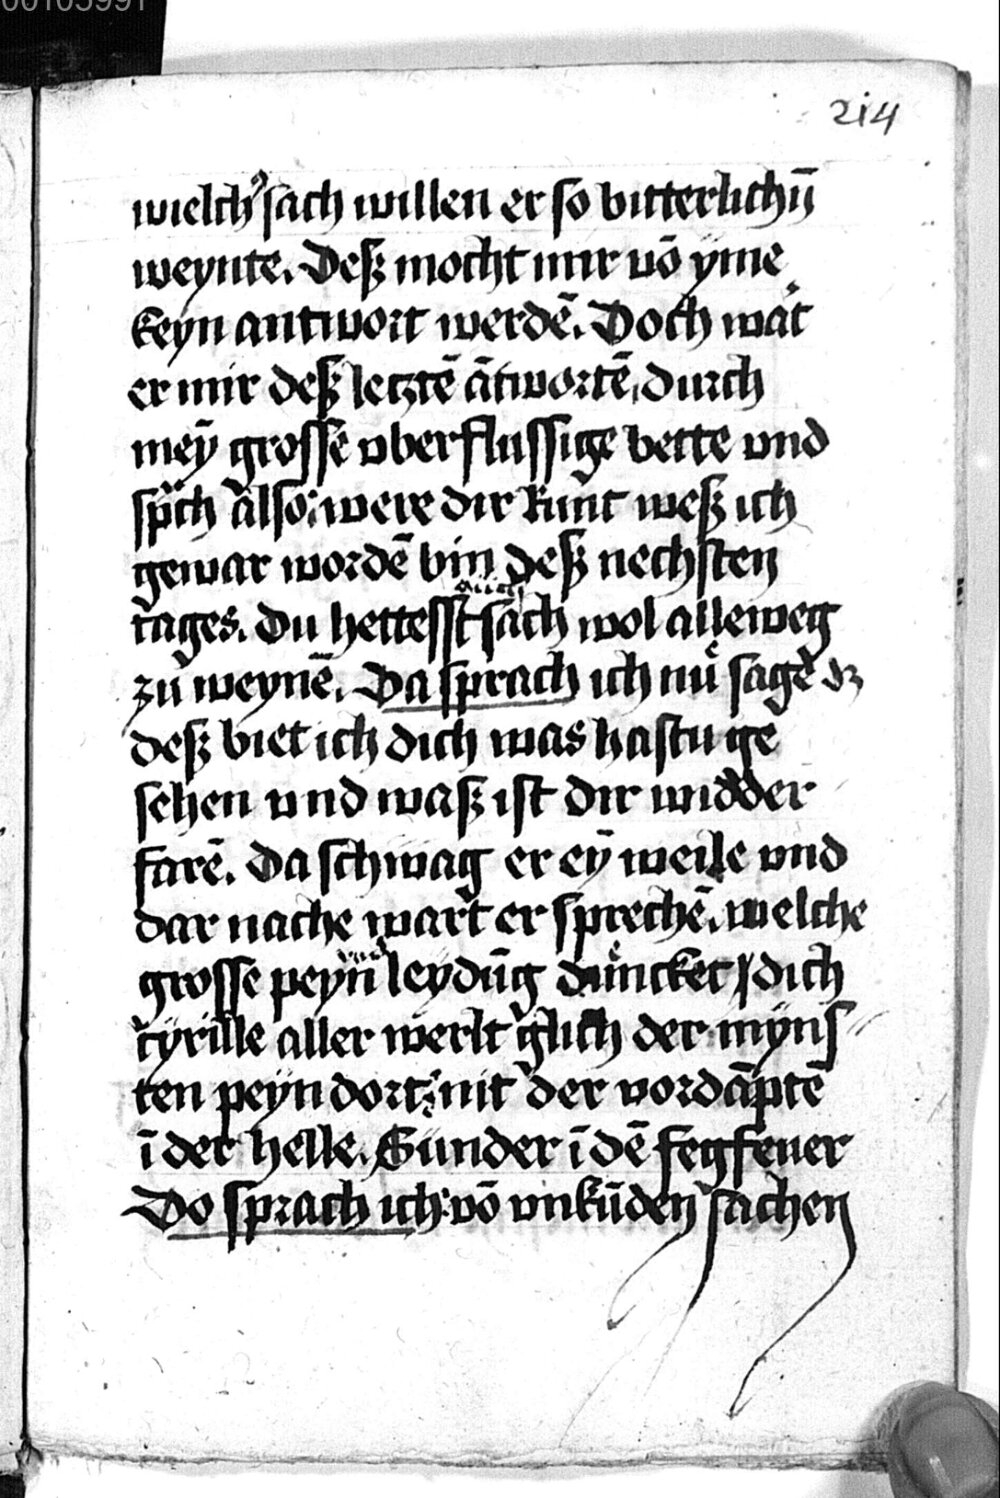 00105991
214
welch᾽ sach willen er so bitterlichn̄
weynte. Desz mocht mir vō yme
keyn antwort werdē. Doch wart
er mir desz letztē ātwortē, durch
mey̅ grosse vberflussige bette vnd
sprͣch also: were dir kunt wesz ich
gewar wordē bin desz nechsten
tages. Du hettesst sach wol alleweg
zů weynē. Da sprach ich nů sagē dz
desz biet ich dich was hastu ge
sehen vnd wasz ist dir widder
farē. Da schwag er ey̅ weile vnd
dar nache wart er sprechē. welche
grosse peyn leydūg duncket dich
cyrille aller werlt glich der myns
ten peyn dort: nit der vordāptē
ī der helle. Sunder ī dē fegfeuer
Do sprach ich: vō vnkūden sachen